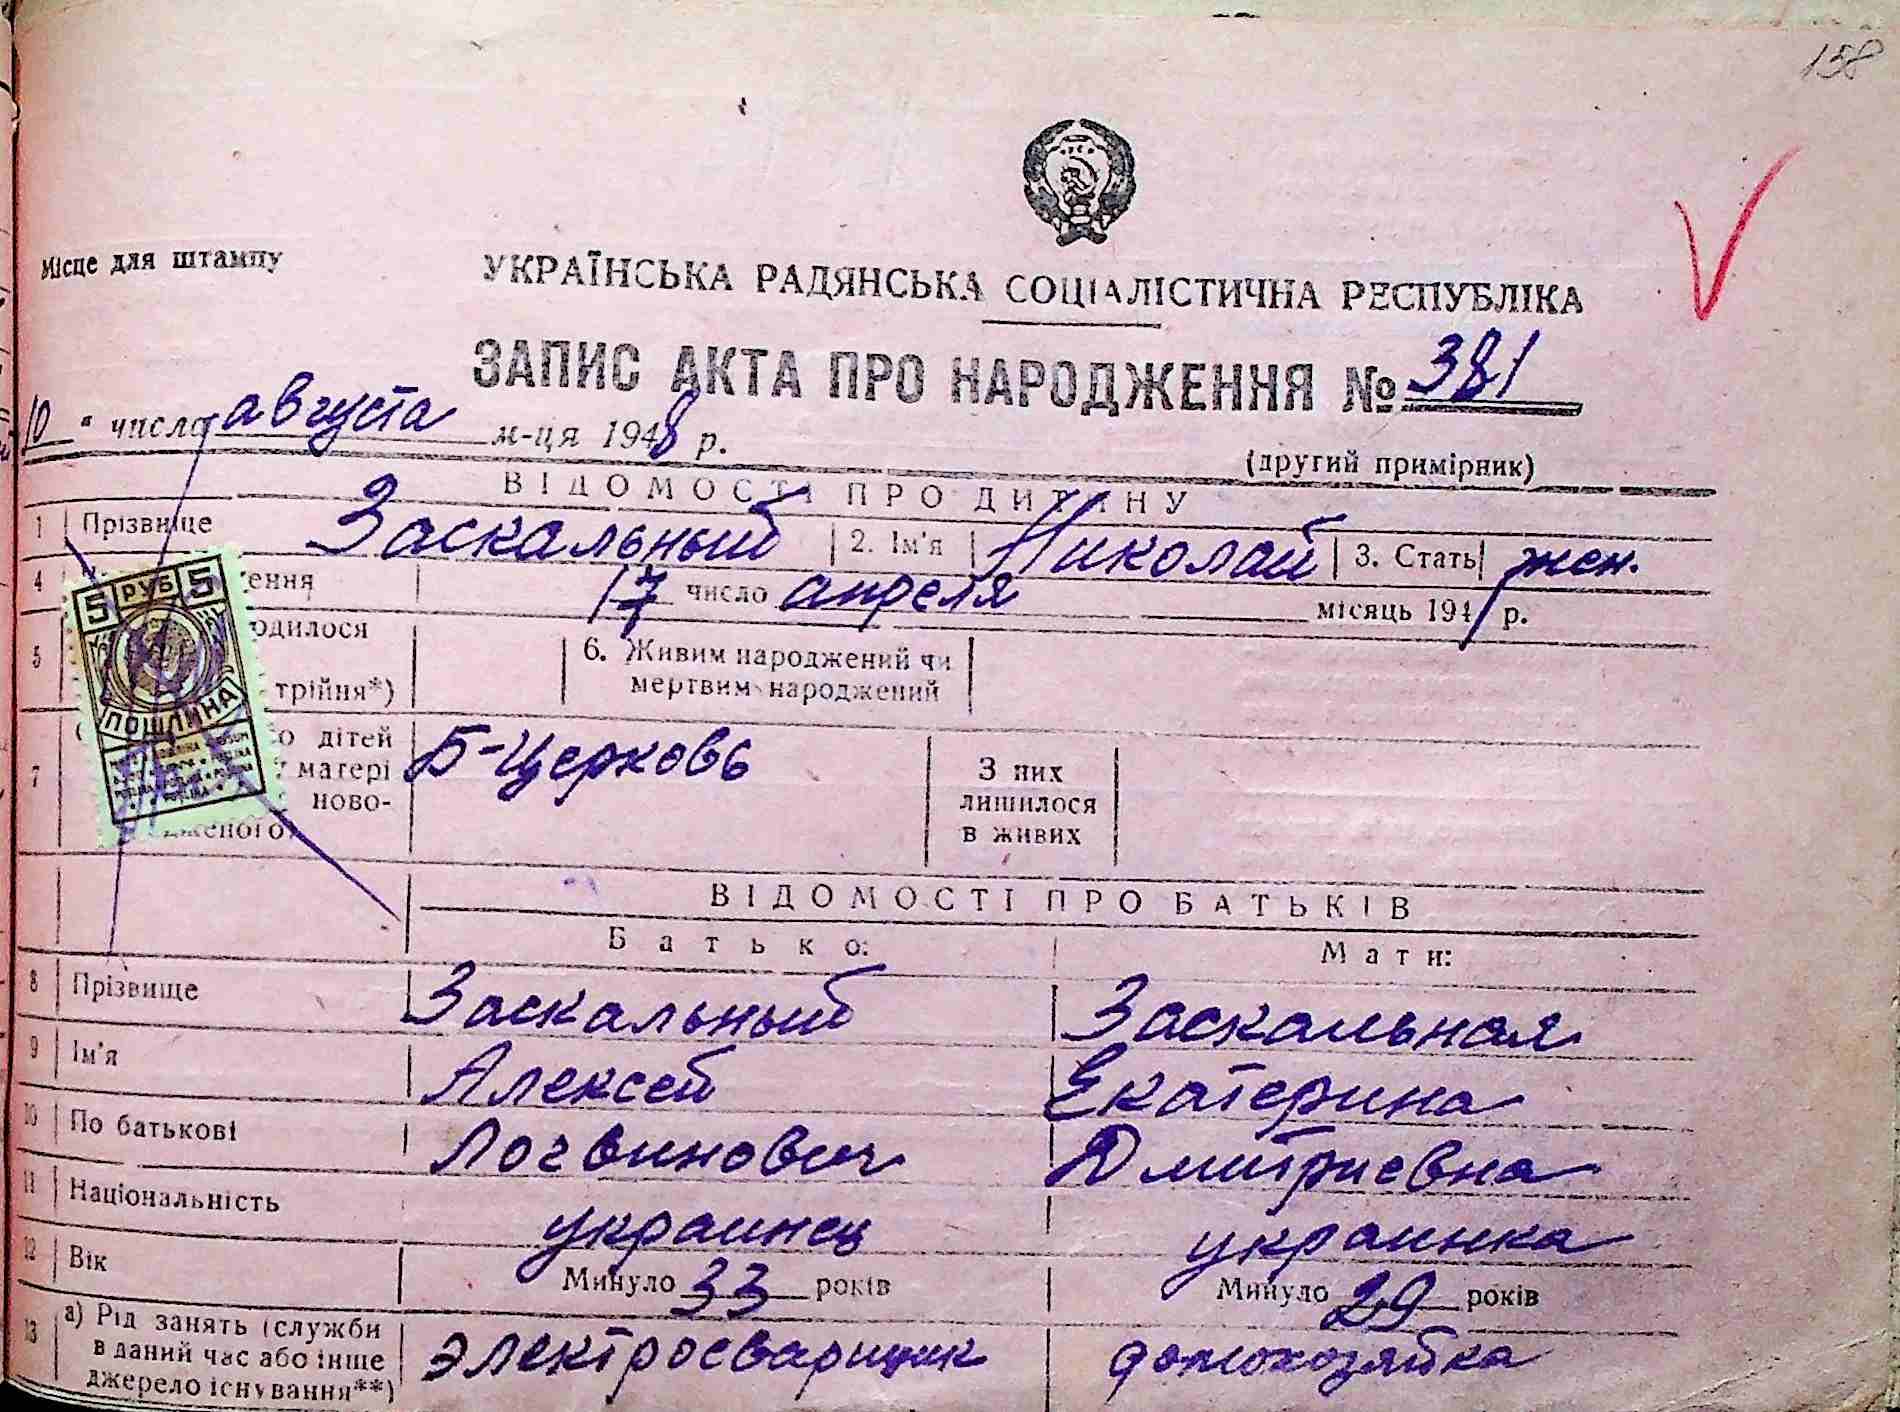 158
Місце для штампу
УКРАЇНСЬКА РАДЯНСЬКА СОЦІАЛІСТИЧНА РЕСПУБЛІКА
ЗАПИС АКТА ПРО НАРОДЖЕННЯ № 381
10 " число августа м-ця 1948 р.
(другий примірник)
ВІДОМОСТІ ПРО ДИТИНУ
1 Прізвище Заскальный 2. Ім'я Николай 3. Стать жен.
4 ення 17 число апреля місяць 1941 р.
5 одилося трійня*) 6. Живим народжений чи мертвим народжений
7 о дітей матері ново- дженого) Б-Церковь З них лишилося в живих
ВІДОМОСТІ ПРО БАТЬКІВ
Батько: Мати:
8 Прізвище Заскальный Заскальная
9 Ім'я Алексей Екатерина
10 По батькові Логвинович Дмитриевна
11 Національність украинец украинка
12 Вік Минуло 33 років Минуло 29 років
13 а) Рід занять (служби в даний час або інше джерело існування**) электросварщик домохозяйка
5 РУБ 5
ПОШЛИНА